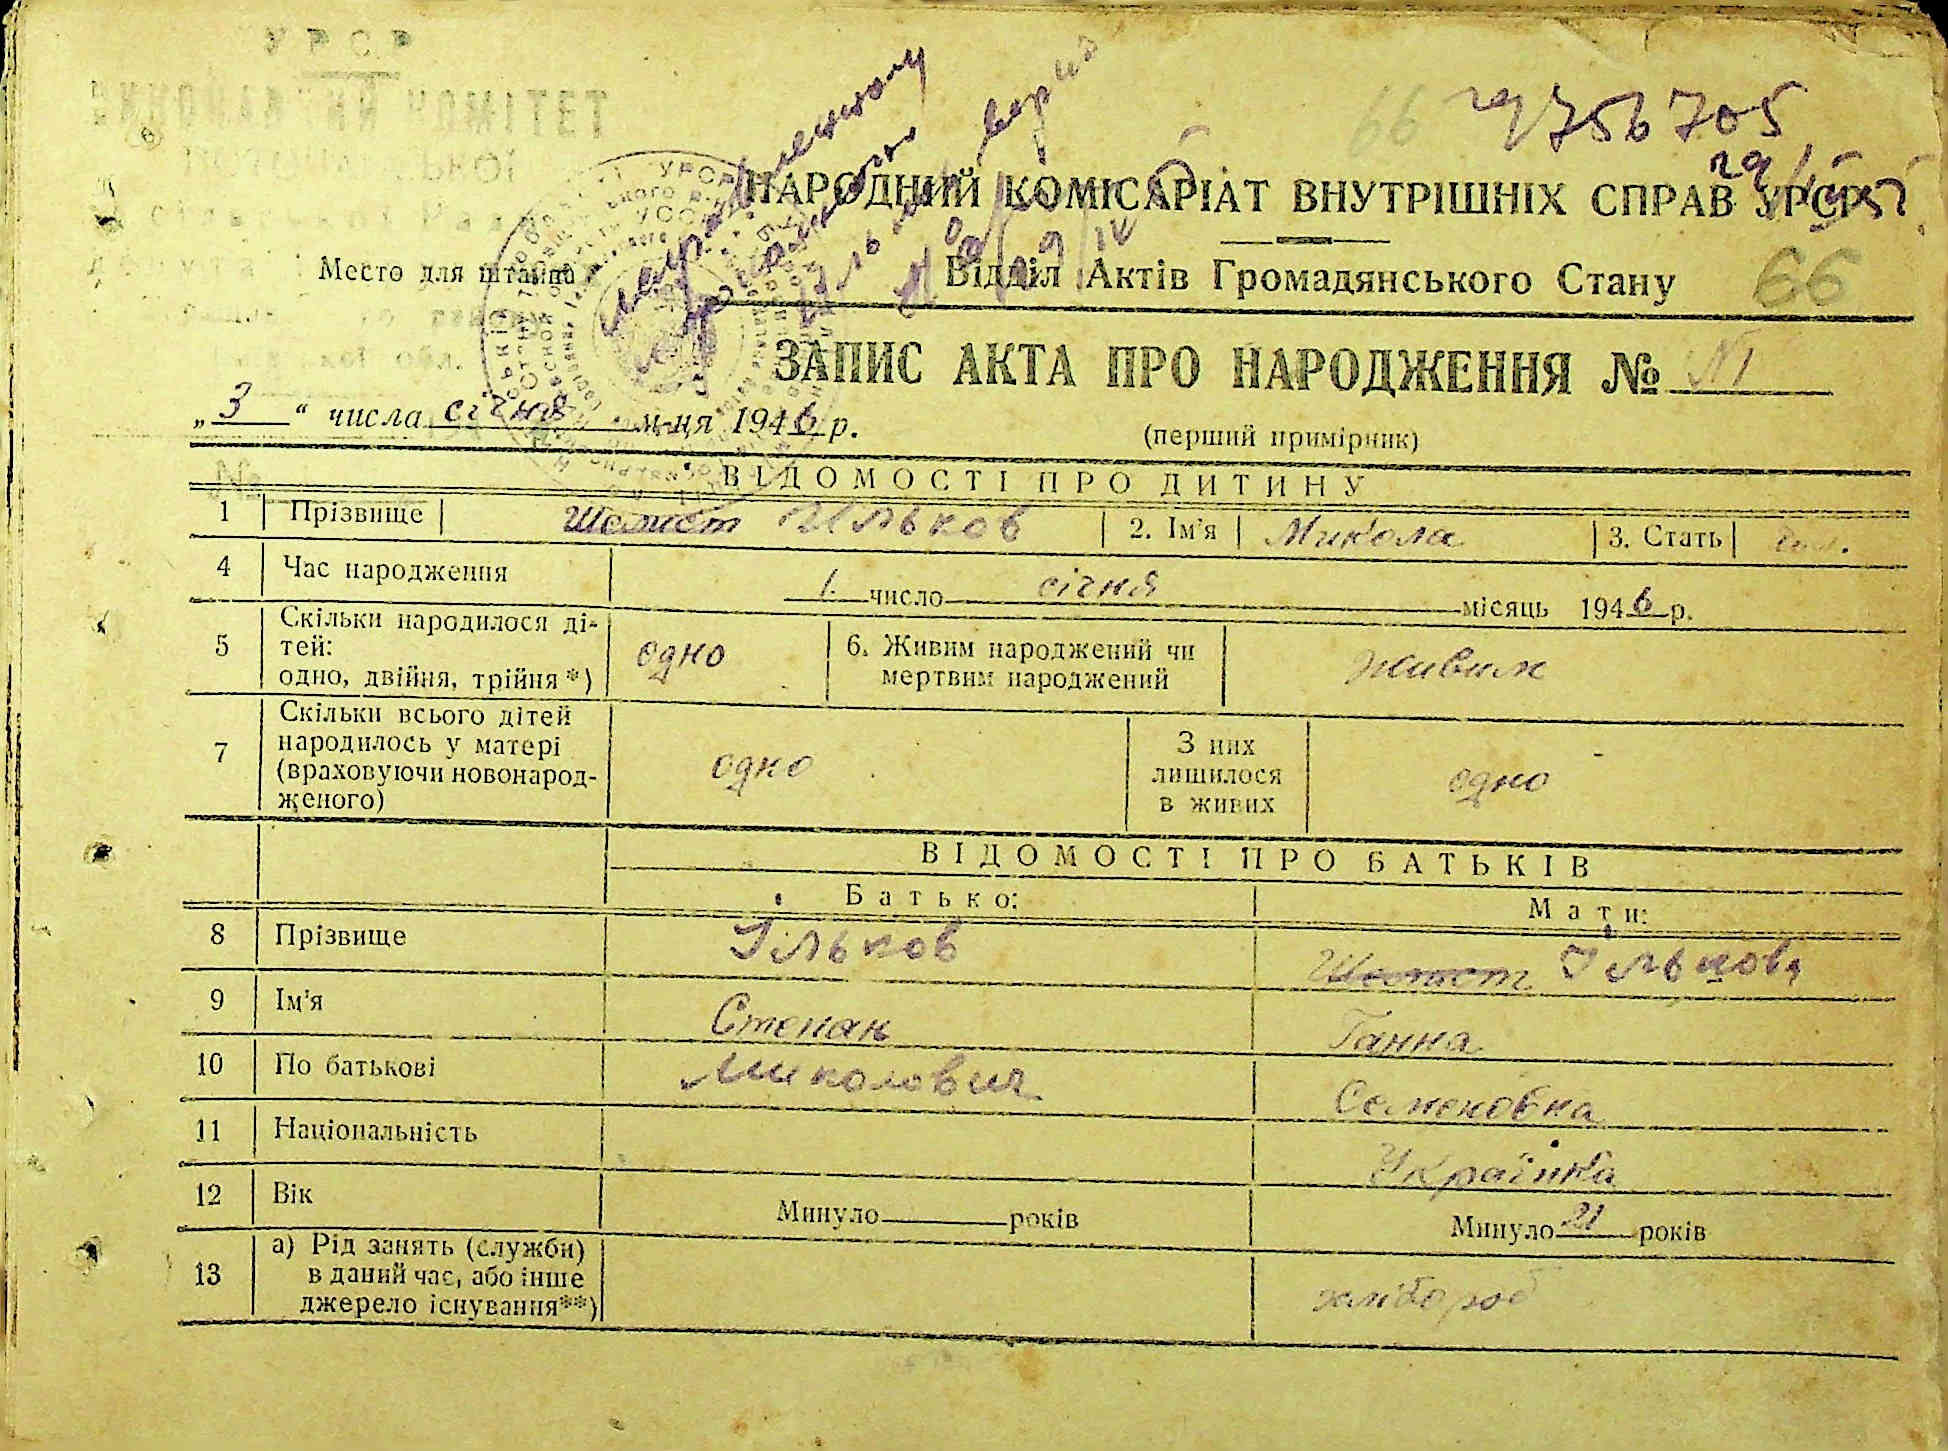 УРСР
66
756705
НАРОДНИЙ КОМІСАРІАТ ВНУТРІШНІХ СПРАВ УРСР
Место для штампа
Відділ Актів Громадянського Стану
66
ЗАПИС АКТА ПРО НАРОДЖЕННЯ № 1
„3“ числа січня м-ця 1946 р.
(перший примірник)
ВІДОМОСТІ ПРО ДИТИНУ
1 Прізвище Ильков 2. Ім'я Микола 3. Стать
4 Час народження 1. число січня місяць 1946 р.
5 Скільки народилося ді-
тей:
одно, двійня, трійня*) одно 6. Живим народжений чи
мертвим народжений живим
7 Скільки всього дітей
народилось у матері
(враховуючи новонарод-
женого) одно З них
лишилося
в живих одно
ВІДОМОСТІ ПРО БАТЬКІВ
Батько: Мати:
8 Прізвище Ільков Ількова
9 Ім'я Степан Ганна
10 По батькові Миколович Семеновна
11 Національність Українка
12 Вік Минуло років Минуло 21 років
13 а) Рід занять (служби)
в даний час, або інше
джерело існування**) хлібороб